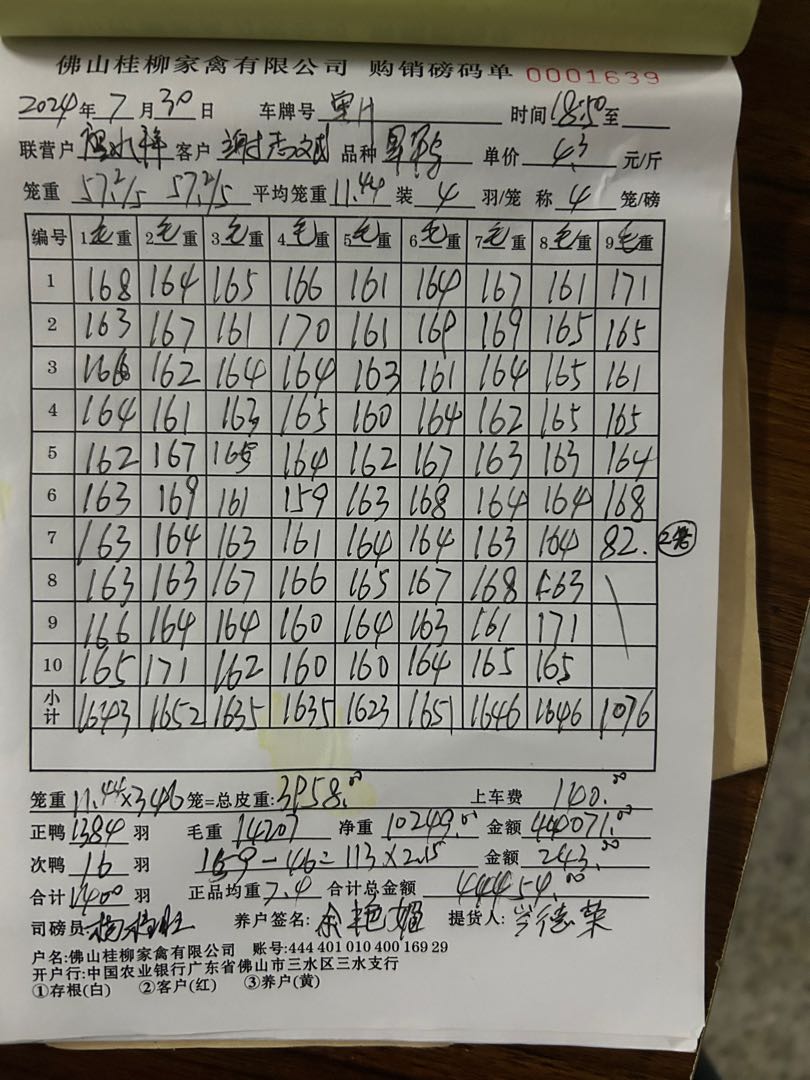 佛山桂柳家禽有限公司 购销磅码单 0001639
2024年 7 月 30 日 车牌号 时间 18:50 至
联营户 客户 谢志斌 品种 单价 4.3 元/斤
笼重 57.2/5 57.2/5 平均笼重 11.44 装 4 羽/笼 称 4 笼/磅
编号 1毛重 2毛重 3毛重 4毛重 5毛重 6毛重 7毛重 8毛重 9毛重
1 168 164 165 166 161 164 167 161 171
2 163 167 161 170 161 169 169 165 165
3 166 162 164 164 163 161 164 165 161
4 164 161 163 165 160 164 162 165 165
5 162 167 165 164 162 167 163 163 164
6 163 169 161 159 163 168 164 164 168
7 163 164 163 161 164 164 163 164 82. 2笼
8 163 163 167 166 165 167 168 163
9 166 164 164 160 164 163 161 171
10 165 171 162 160 160 164 165 165
小计 1643 1652 1635 1635 1623 1651 1646 1646 1076
笼重 11.44×346 笼=总皮重: 3958.00 上车费 140.00
正鸭 1384 羽 毛重 14207 净重 10249.00 金额 44071.00
次鸭 16 羽 159-46=113×2.15 金额 243.00
合计 1400 羽 正品均重 7.4 合计总金额 44454.00
司磅员: 养户签名: 余艳媚 提货人: 德荣
户名:佛山桂柳家禽有限公司 账号:444 401 010 400 169 29
开户行:中国农业银行广东省佛山市三水区三水支行
①存根(白) ②客户(红) ③养户(黄)